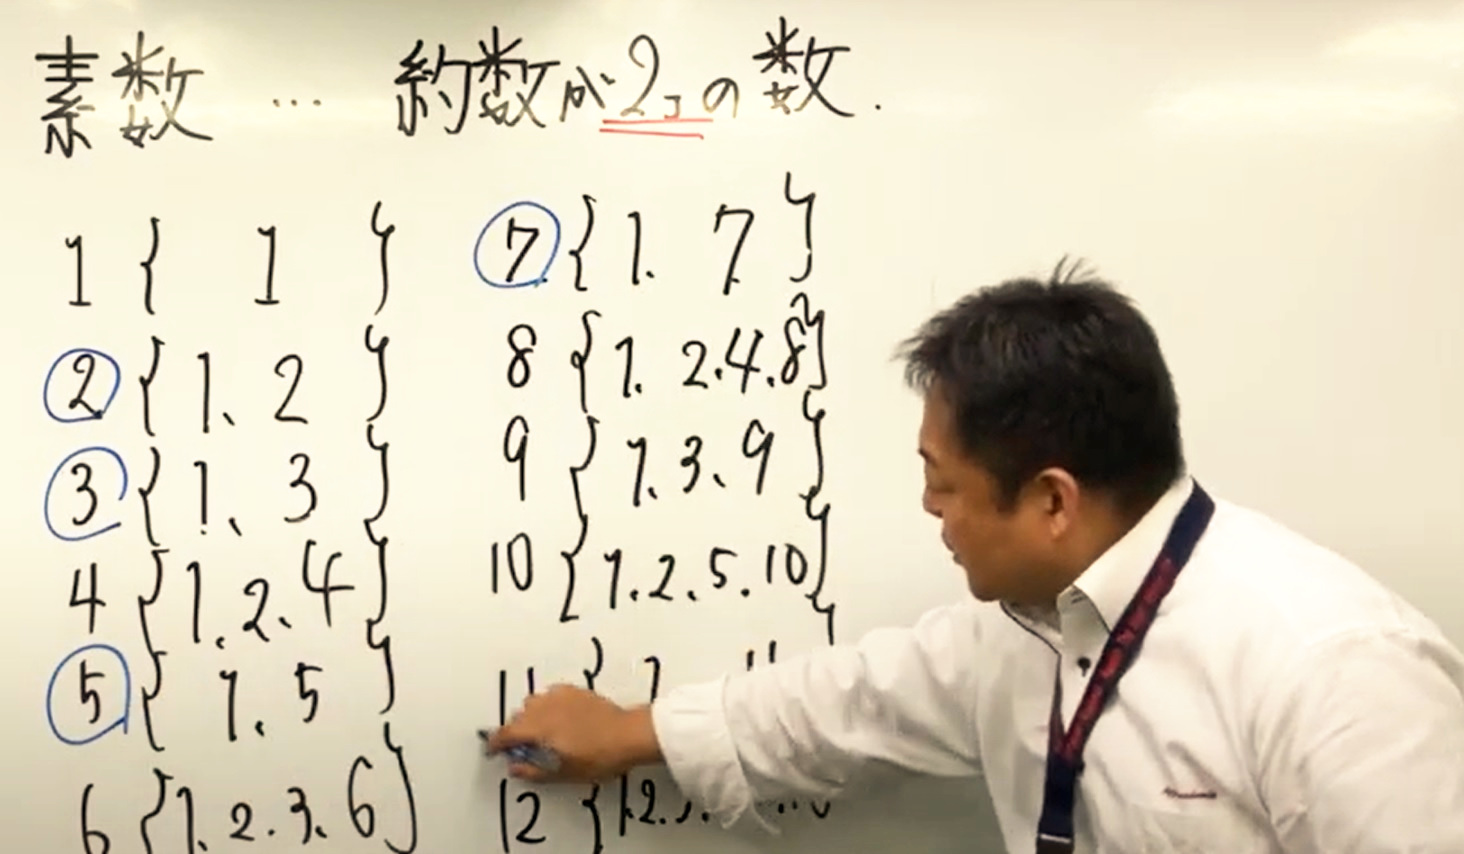 素数 … 約数が2コの数.
1 { 1 }
2 { 1、2 }
3 { 1、3 }
4 { 1.2.4 }
5 { 1、5 }
6 { 1.2.3.6 }
7 { 1. 7 }
8 { 1. 2.4.8 }
9 { 1.3、9 }
10 { 1.2.5.10 }
11 { 1
12 { 1.2